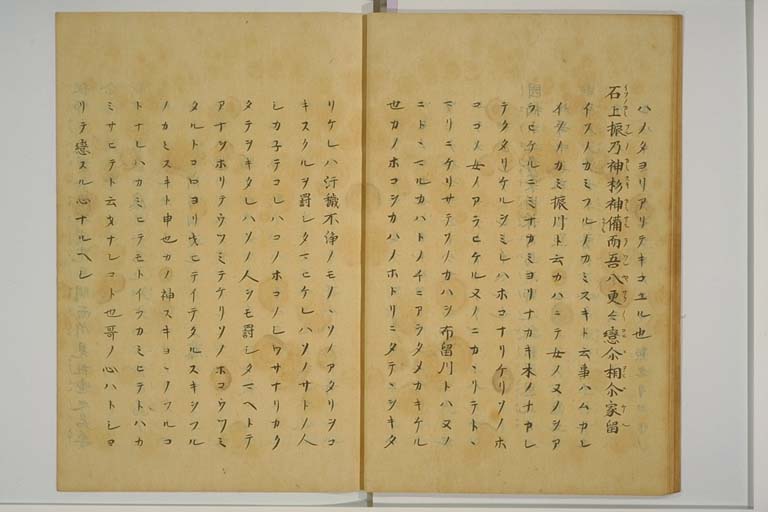 ハノタヨリアリテキコエル也
石上振乃神杉神備而吾八更々戀尒相尒家留
イソノカミフルノカミスキト云事ハムカシ
イソノカミ振川ト云カハニテ女ノヌノヲア
ラヒケルニミナカミヨリナカキ木ノナカレ
テクタリケルヲミレハホコナリケリソノホ
ココノ女ノアラヒケルヌノニカヽリテトヽ
マリニケリサテソノカハヲ布留川トハヌノ
ニトヽマルカハトノチニアラタメカキケル
也カノホコヲカハノホトリニタテヲキタ
リケレハ汗穢不浄ノモノハソノアタリヲコ
キスクルヲ罸シタマヒケレハソノサトノ人
シカ子テコレハコノホコノシワサナリカク
タテヲキタレハソノ人ヲモ罸シタマヘトテ
アナヲホリテウツミテケリソノホコウツミ
タルトコロヨリヒテイテタルスキヲフル
ノカミスキト申也カノ神スキヨヨリノフルコ
トナレハカミヒテモトイフカミヒテトハカ
ミサヒテト云ヲナシコト也哥ノ心ハトショ
リテ戀スル心ナルヘシ